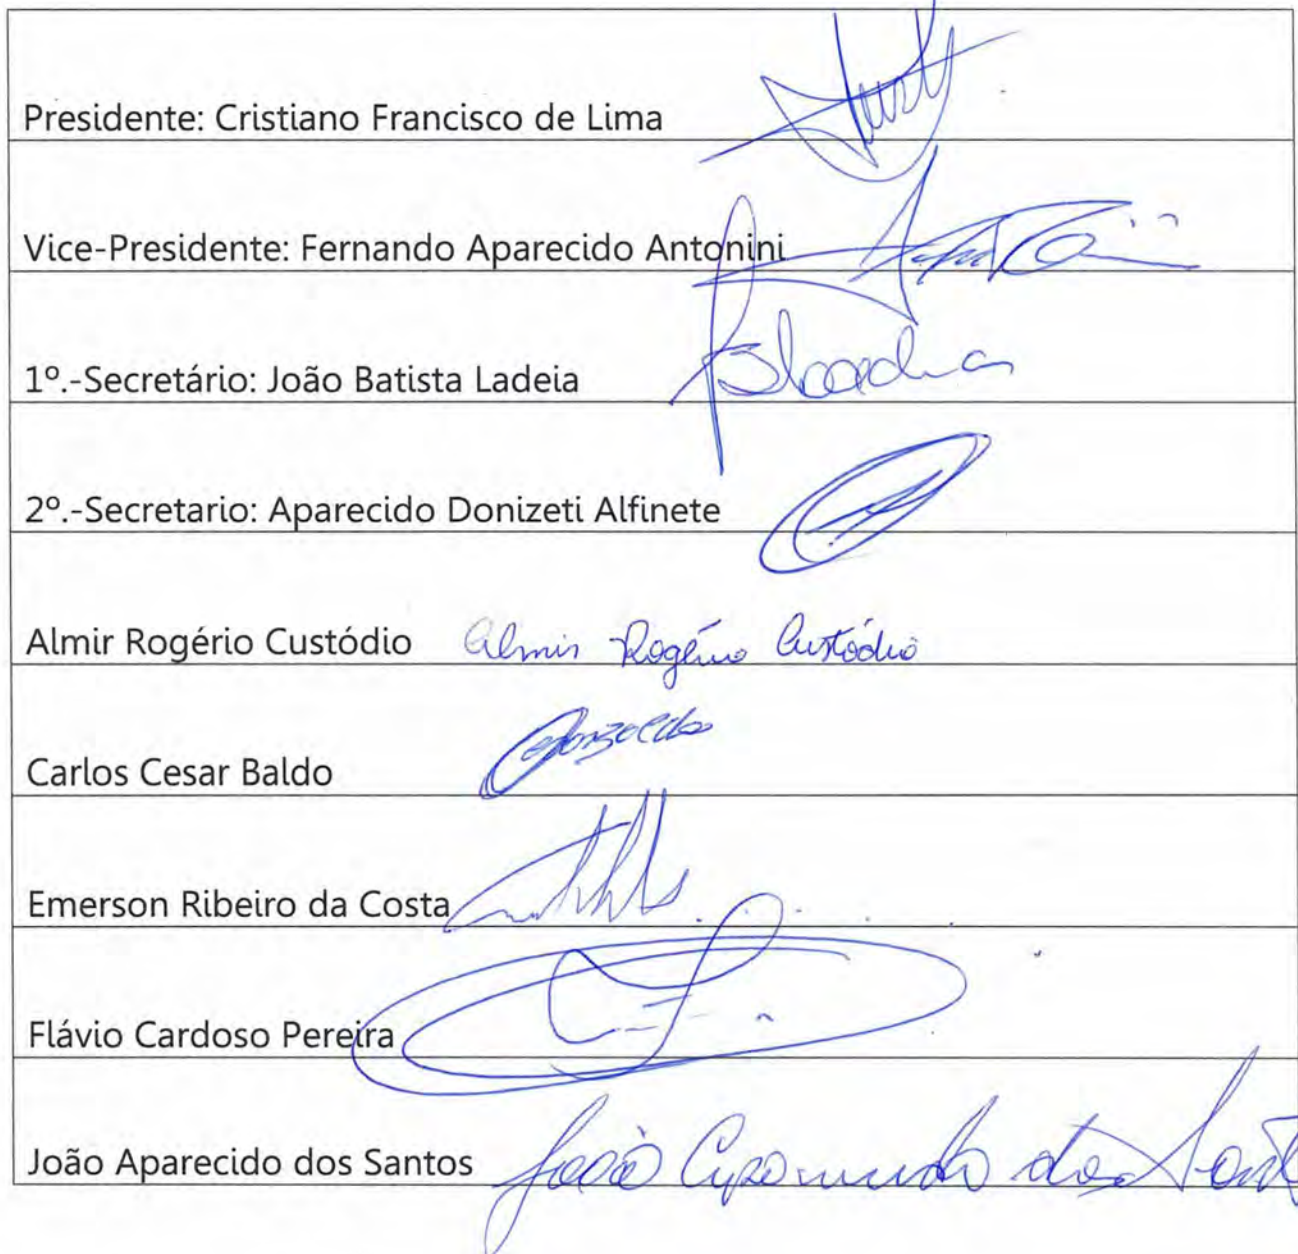 Presidente: Cristiano Francisco de Lima
Vice-Presidente: Fernando Aparecido Antonini
1º.-Secretário: João Batista Ladeia
2º.-Secretario: Aparecido Donizeti Alfinete
Almir Rogério Custódio Almir Rogério Custódio
Carlos Cesar Baldo
Emerson Ribeiro da Costa
Flávio Cardoso Pereira
João Aparecido dos Santos João Aparecido dos Sant